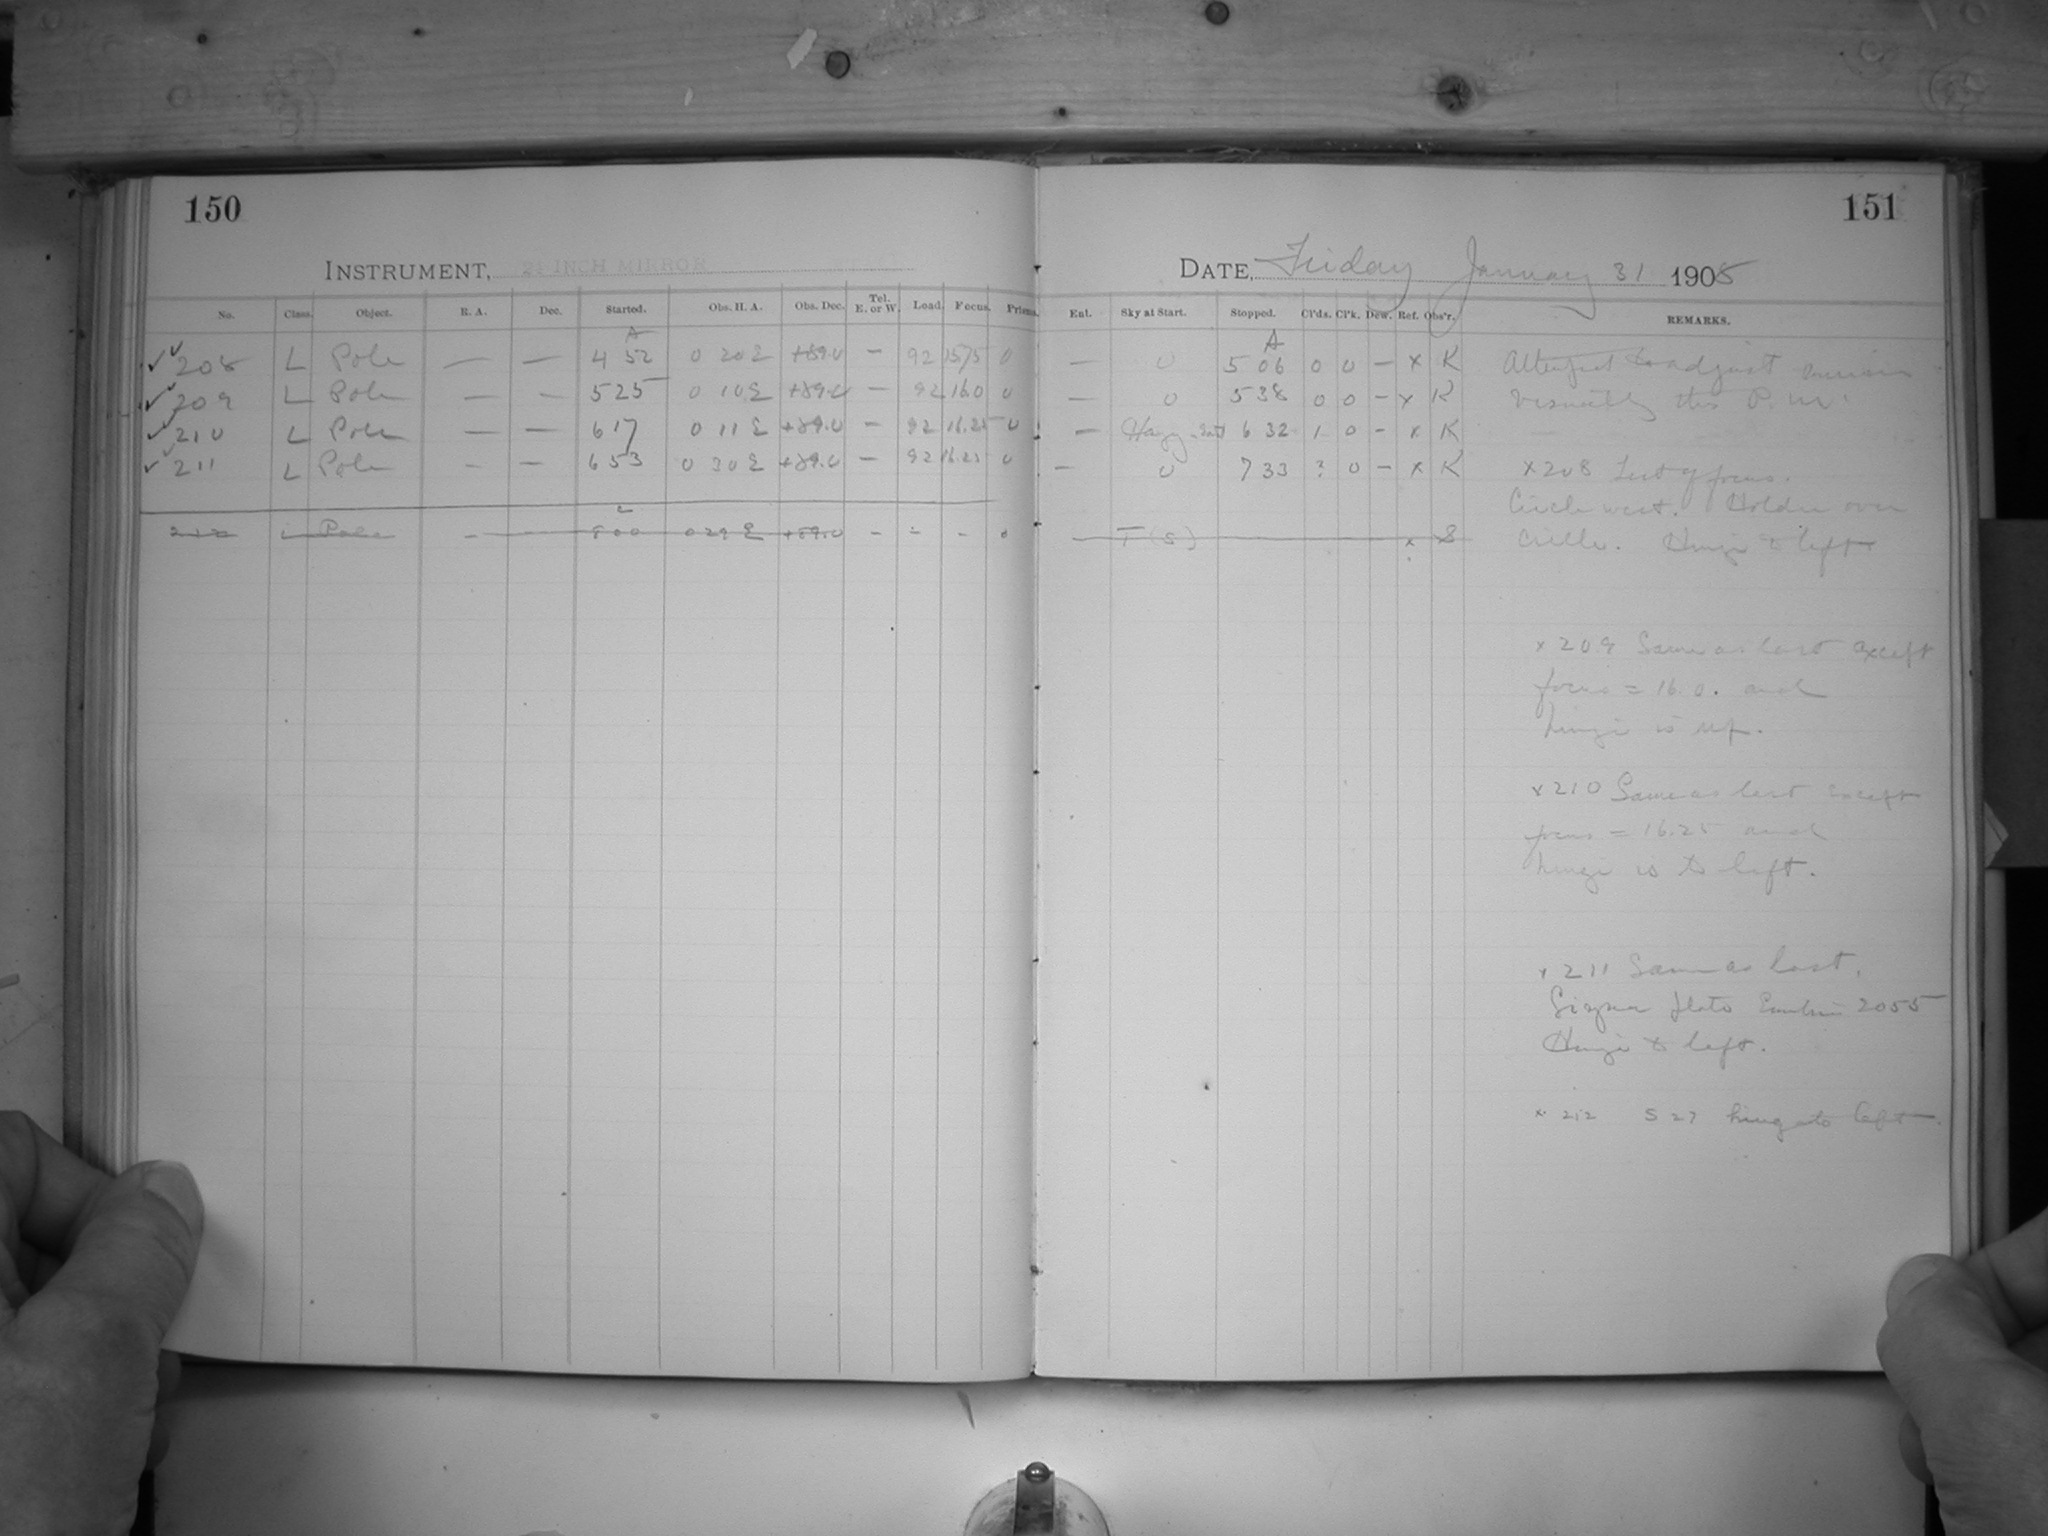 150
INSTRUMENT, 21 INCH MIRROR
No. Class. Object. R. A. Dec. Started. Obs. H. A. Obs. Dec. Tel. E. or W. Load. Focus. Prisms.
A
✓✓ 208 L Pole — — 4 52 0 20 E +89.0 — 92 15.75 0
✓✓ 209 L Pole — — 5 25 0 10 E +89.0 — 92 16.0 0
✓✓ 210 L Pole — — 6 17 0 11 E +89.0 — 92 16.25 0
✓✓ 211 L Pole — — 6 53 0 30 E +89.0 — 92 16.25 0
212 L Pole — — 8 00 0 29 E +89.0 — — — 0
151
DATE, Friday January 31 1908
Eat. Sky at Start. Stopped. Cl'ds. Cl'k. Dew. Ref. Obs'r. REMARKS.
A
— 0 5 06 0 0 — x K Attempt to adjust mirrors
— 0 5 38 0 0 — x K visually this P.M.
— Hazy 6 32 1 0 — x K
— 0 7 33 ? 0 — x K x 208 Test of focus.
Circle west. Holder over
T (S) x S circle. Hinge to left
x 209 Same as last except
focus = 16.0. and
hinge is up.
x 210 Same as last except
focus = 16.25 and
hinge is to left.
x 211 Same as last.
Sigma Plate Emulsion 2055
Hinge to left.
x 212 S 27 hinge to left.